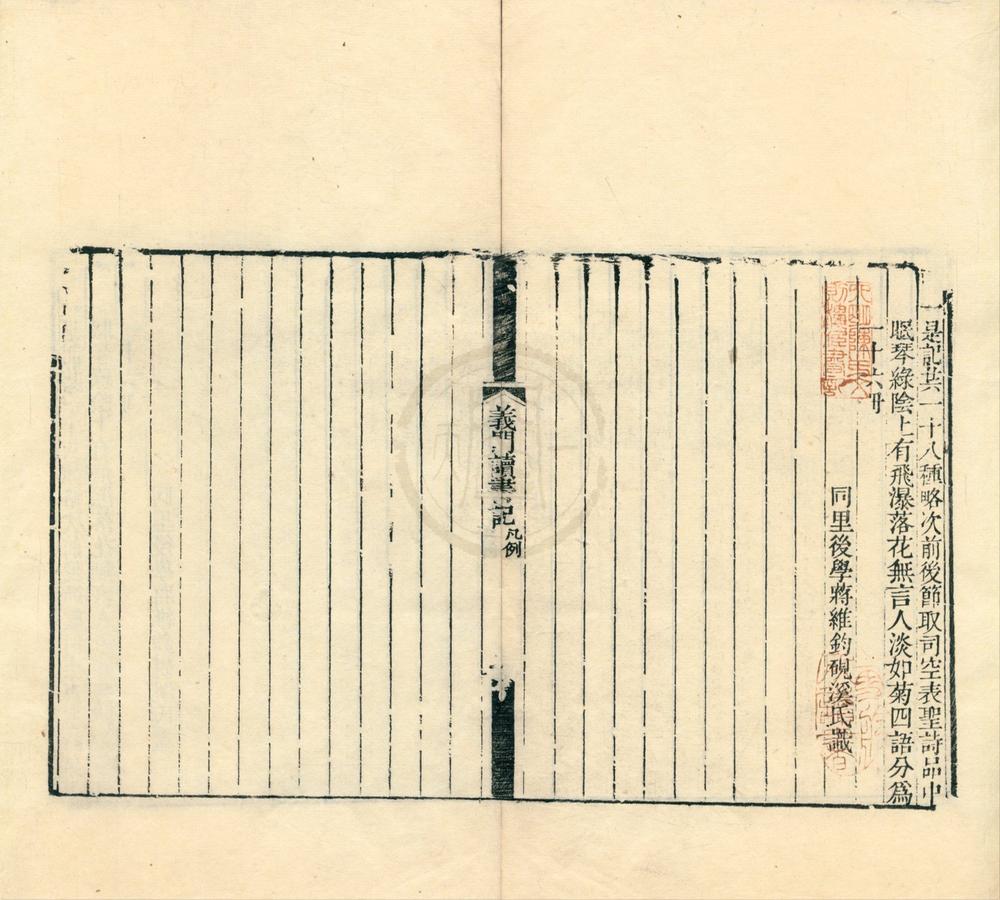 一是記共一十八種略次前後節取司空表聖詩品中
眠琴綠陰上有飛瀑落花無言人淡如菊四語分爲
一十六冊
同里後學蔣維鈞硯溪氏識
義門讀書記
凡例